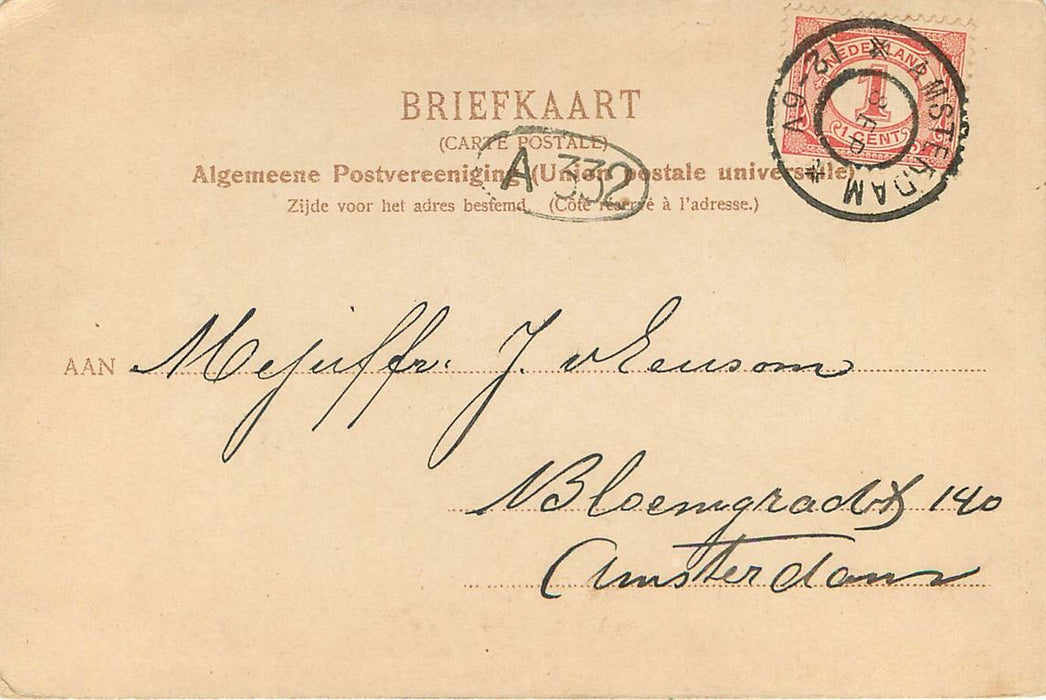 BRIEFKAART
(CARTE POSTALE)
Algemeene Postvereeniging (Union postale universelle)
Zijde voor het adres bestemd. (Côté réservé à l'adresse.)
A 332
NEDERLAND
1
1 CENT
AMSTERDAM
12-6V
FEB
AAN Mejuffr. J. v Eeusom
NBloemgracht 140
Amsterdam